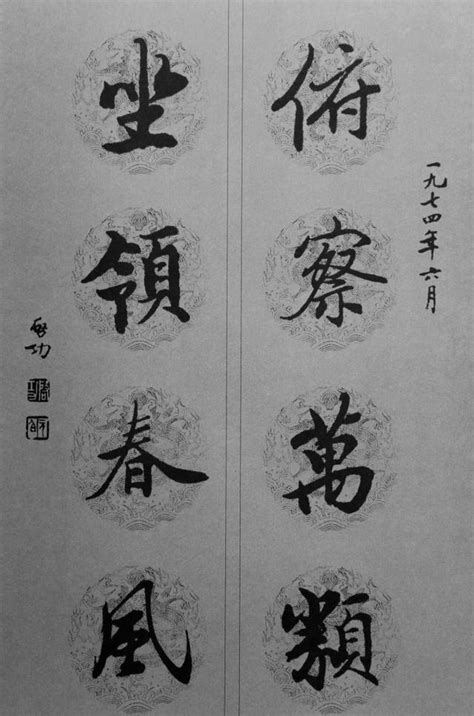 一九七四年六月
俯察萬類
坐領春風
啓功